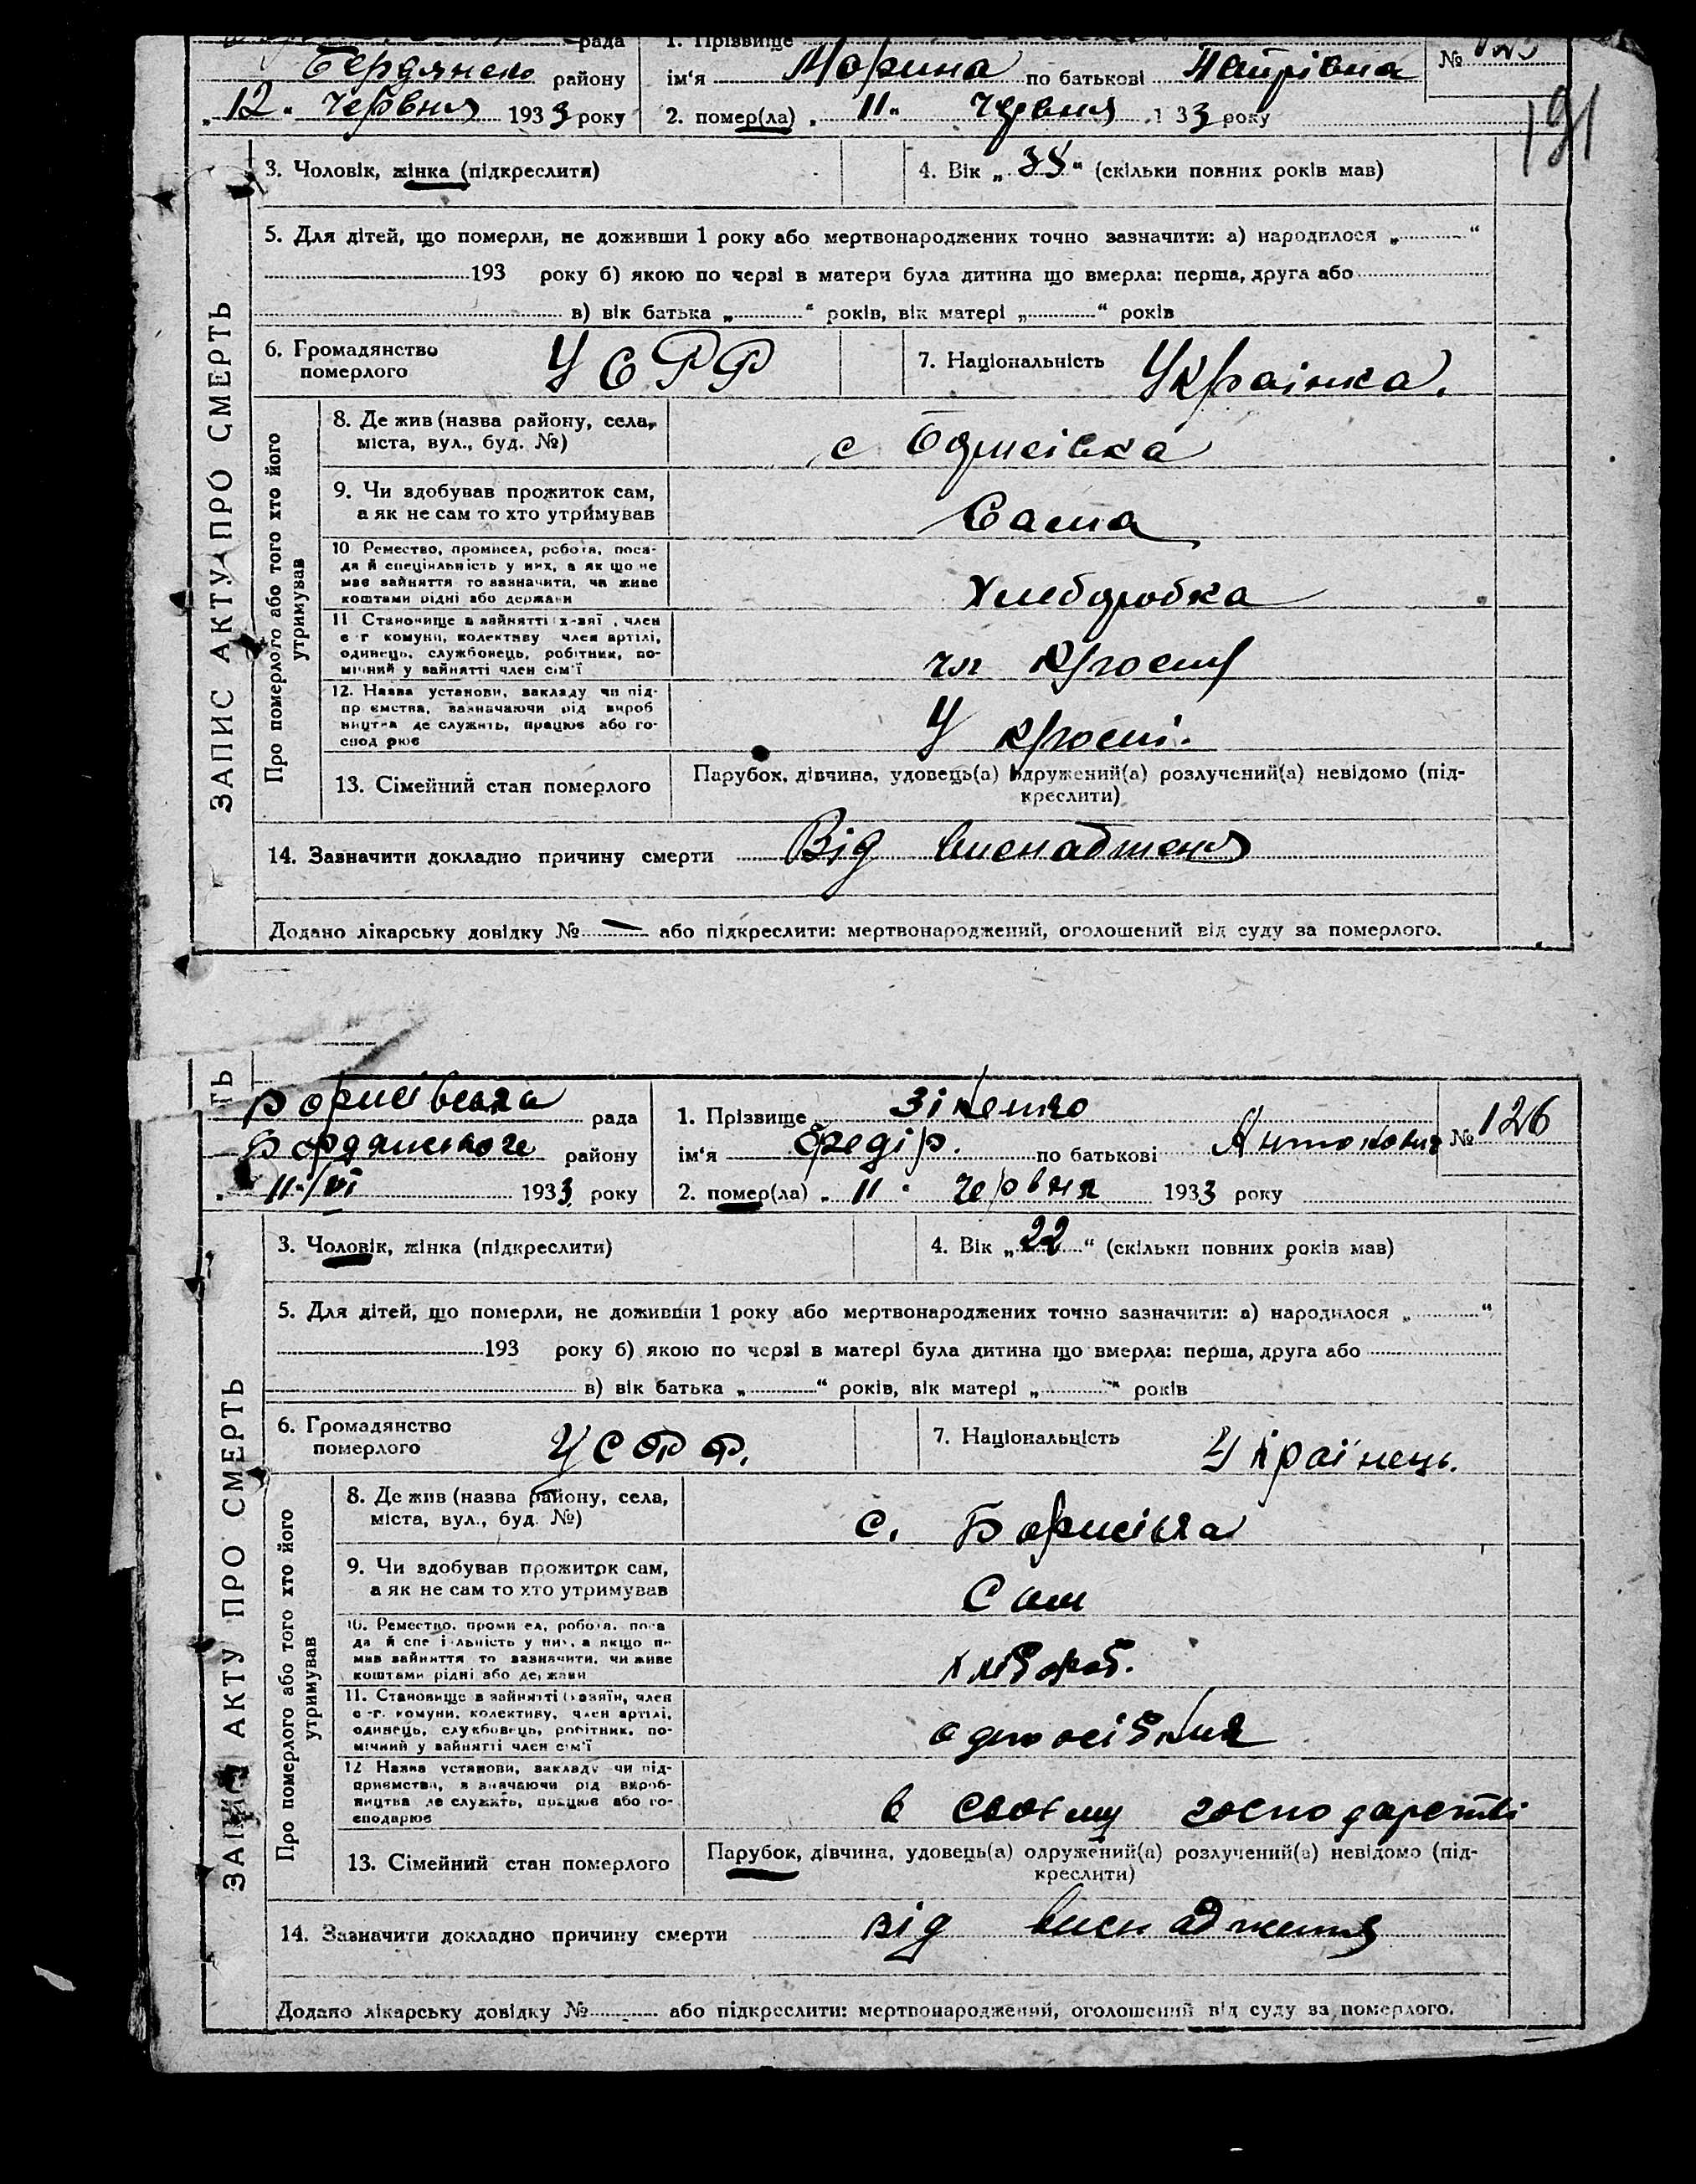 рада 1. Прізвище
Бердянськ району ім'я Морина по батькові Петрівна № 125
„12" червня 1933 року 2. помер(ла) „11" червня 1 33 року
191
3. Чоловік, жінка (підкреслити) 4. Вік „ " (скільки повних років мав)
5. Для дітей, що померли, не доживши 1 року або мертвонароджених точно зазначити: а) народилося „ "
193 року б) якою по черзі в матери була дитина що вмерла: перша, друга або
в) вік батька „ " років, вік матері „ " років
6. Громадянство померлого УСРР 7. Національність Украінка.
ЗАПИС АКТУ ПРО СМЕРТЬ
Про померлого або того хто його утримував
8. Де жив (назва району, села,
міста, вул., буд. №) с Борисівка
9. Чи здобував прожиток сам,
а як не сам то хто утримував Сама
10 Ремество, промисел, робота, поса-
да й спеціяльність у них, а як що не
має зайняття то зазначити, чи живе
коштами рідні або держави Хлеборобка
11 Становище в зайнятті х-заї , член
с г комуни, колективу член артілі,
одинець, службовець, робітник, по-
мічний у зайнятті член сім'ї чл
12. Назва установи, закладу чи під-
пр ємства, зазначаючи рід вироб
ництва де служить, працює або го-
спод рює У
13. Сімейний стан померлого Парубок, дівчина, удовець(а) одружений(а) розлучений(а) невідомо (під-
креслити)
14. Зазначити докладно причину смерти Від виснадженя
Додано лікарську довідку № — або підкреслити: мертвонароджений, оголошений від суду за померлого.
ТЬ
Борисівська рада 1. Прізвище Зіненко
Бордянського району ім'я Федір. по батькові Антонович № 126
„11"/VI 1933 року 2. помер(ла) „11" червня 1933 року
3. Чоловік, жінка (підкреслити) 4. Вік „22" (скільки повних років мав)
5. Для дітей, що померли, не доживши 1 року або мертвонароджених точно зазначити: а) народилося „ "
193 року б) якою по черзі в матері була дитина що вмерла: перша, друга або
в) вік батька „ " років, вік матері „ " років
6. Громадянство померлого УСРР. 7. Національність Українець.
ЗАПИС АКТУ ПРО СМЕРТЬ
Про померлого або того хто його утримував
8. Де жив (назва району, села,
міста, вул., буд. №) с. Борисівка
9. Чи здобував прожиток сам,
а як не сам то хто утримував Сам
10. Ремество, проми ел, робота, поса
да й спе і льність у них, а якщо н-
має зайняття то зазначити, чи живе
коштами рідні або держави хлібороб.
11. Становище в зайнятті (хазяїн, член
с-г. комуни, колективу, член артілі,
одинець, службовець, робітник, по-
мічний у зайнятті член сім'ї одноосібник
12 Назва установи, закладу чи під-
приємства, з значаючи рід вироб-
ництва де служить, працює або го-
сподарює в своєму господарстві
13. Сімейний стан померлого Парубок, дівчина, удовець(а) одружений(а) розлучений(а) невідомо (під-
креслити)
14. Зазначити докладно причину смерти від виснадження
Додано лікарську довідку № або підкреслити: мертвонароджений, оголошений від суду за померлого.